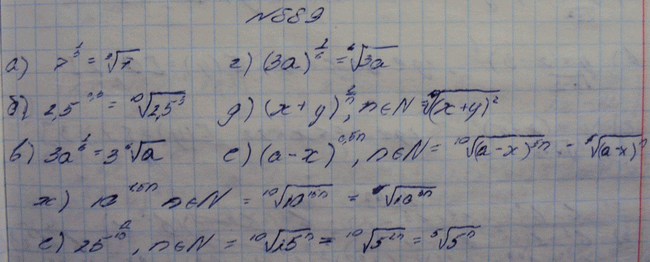 №889
а) 7^{1/3} = ∛7 г) (3a)^{1/6} = ⁶√(3a)
б) 2,5 = ¹⁰√(2,5³) д) (x+y)^{2/n}, n∈N = ⁿ√((x+y)²)
в) 3a^{1/6} = 3⁶√a е) (a-x)^{0,5n}, n∈N = ¹⁰√((a-x)^{5n}) =
ж) 10^{1,5n} n∈N = ¹⁰√(10^{15n}) =
е) 25^{n/10}, n∈N = ¹⁰√(25ⁿ) = ¹⁰√(5^{2n}) = ⁵√(5ⁿ)